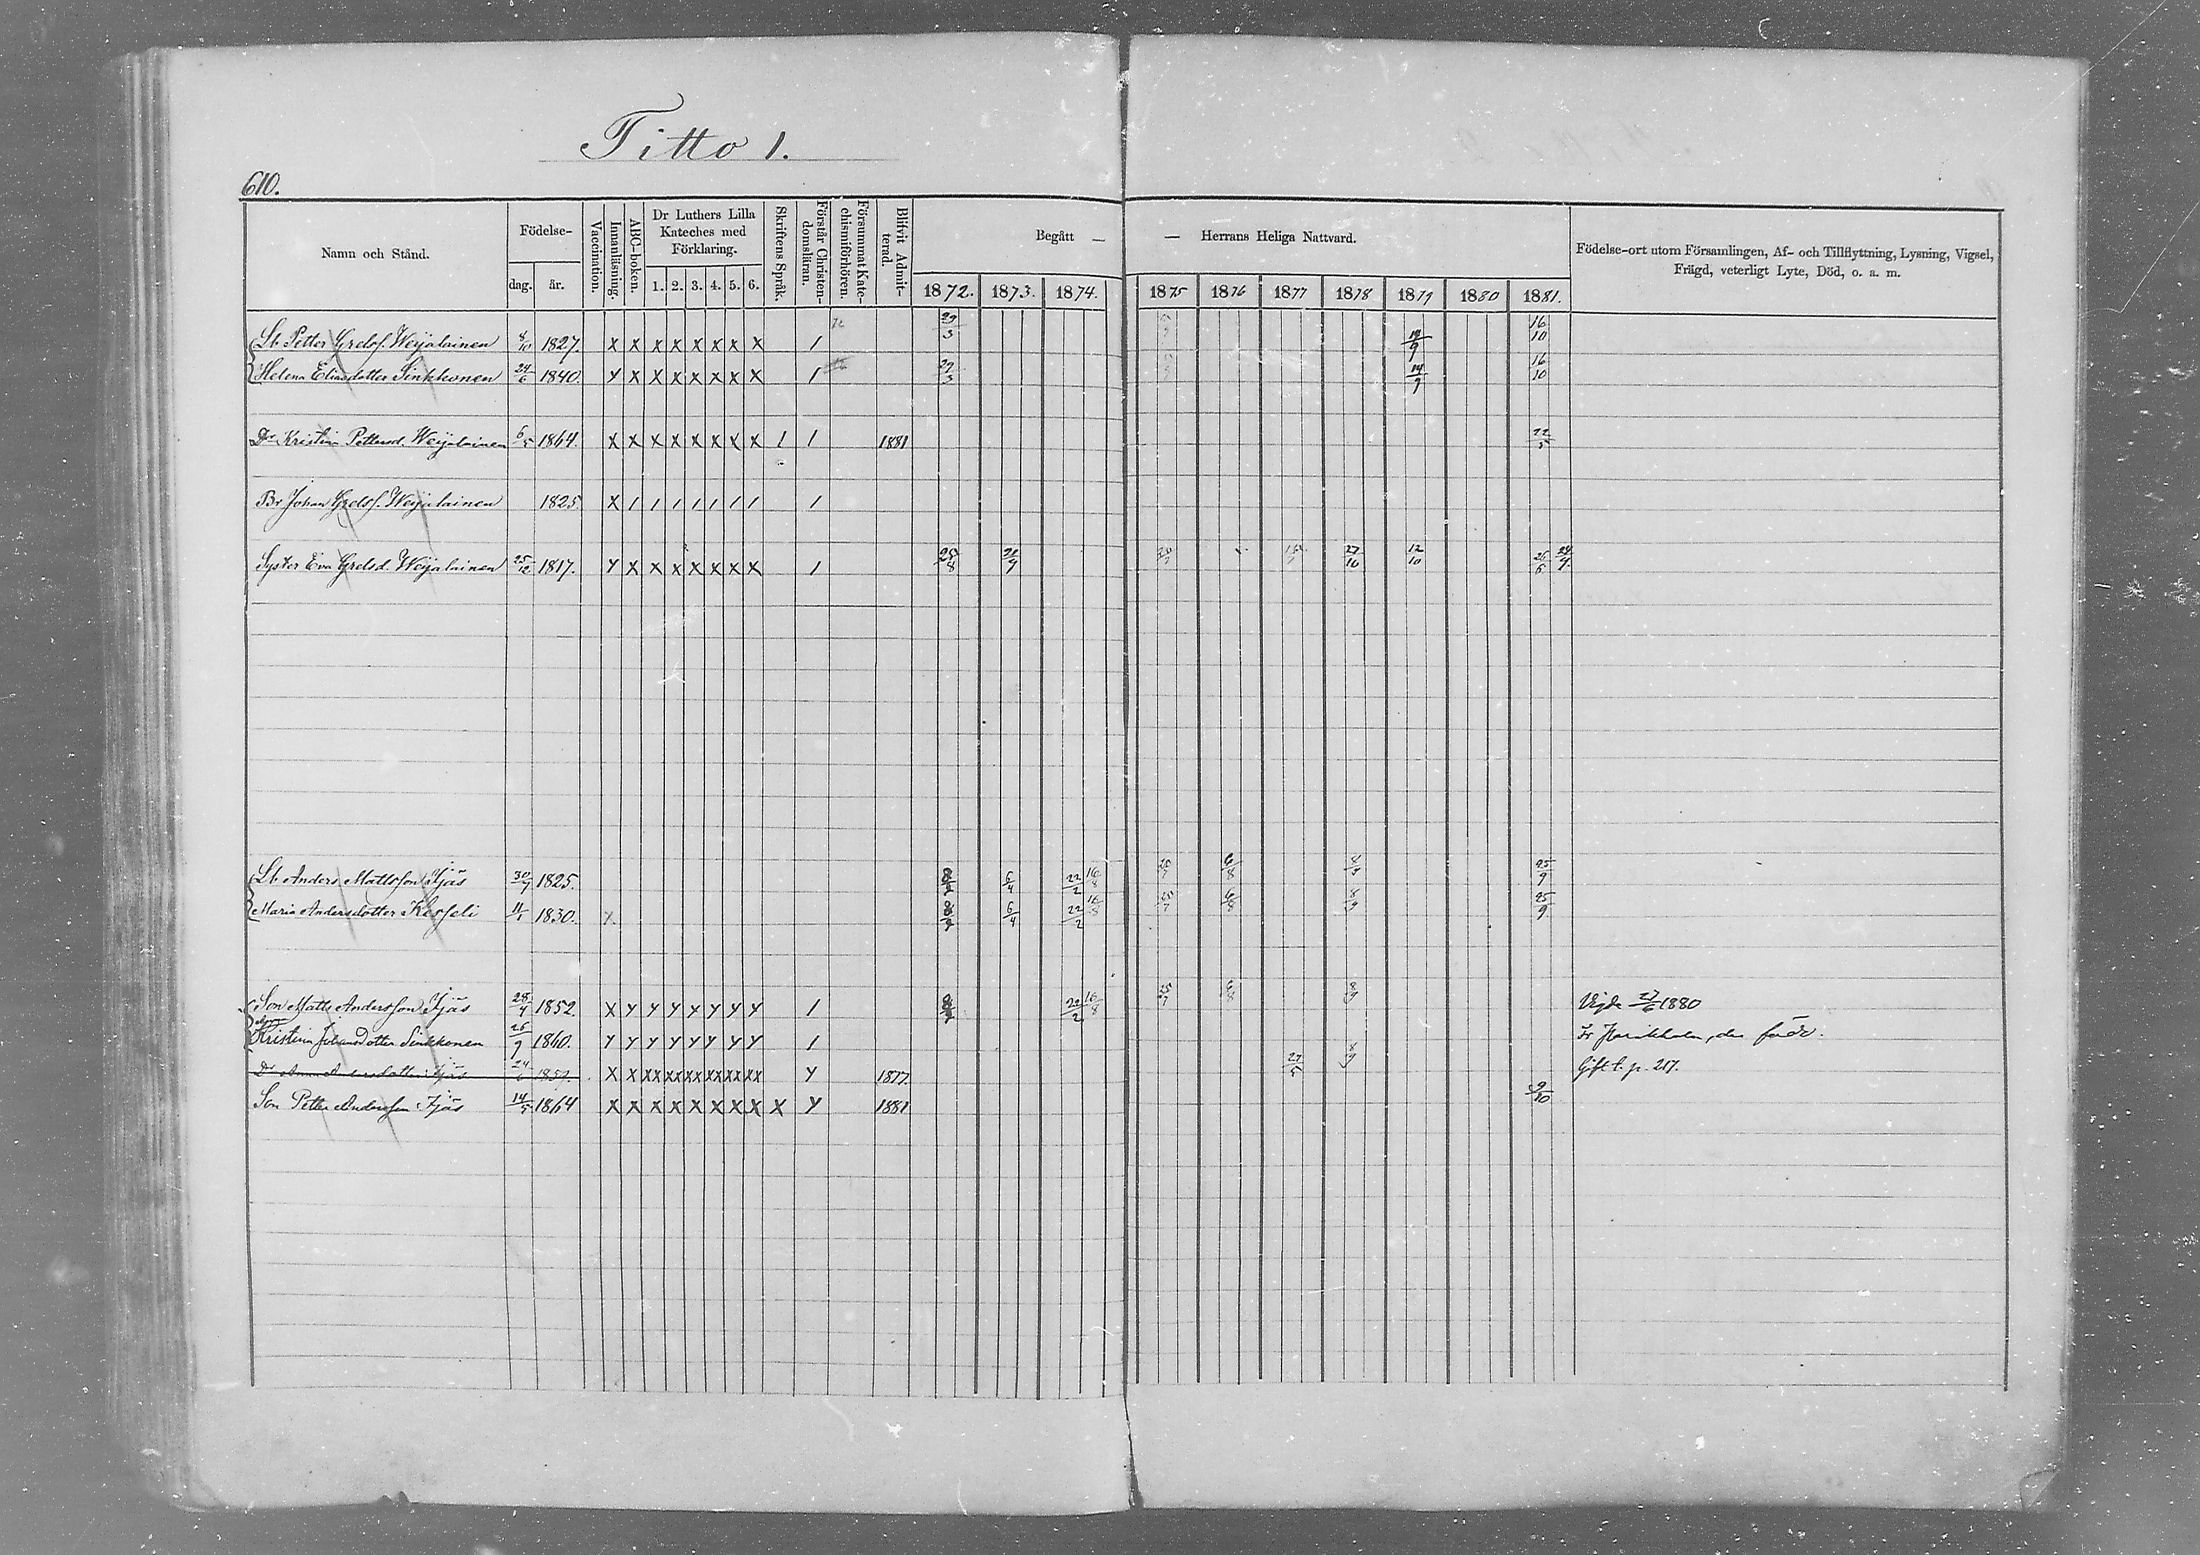 Titto 1.
610.
Namn och Stånd.
Födelse-
dag. år.
Vaccination.
Innanläsning.
ABC-boken.
Dr Luthers Lilla
Kateches med
Förklaring.
1. 2. 3. 4. 5. 6.
Skriftens Språk.
Förstår Christen-
domsläran.
Försummat Kate-
chismiförhören.
Blifvit Admit-
terad.
Begått — — Herrans Heliga Nattvard.
1872. 1873. 1874. 1875 1876 1877 1878 1879 1880 1881.
Födelse-ort utom Församlingen, Af- och Tillflyttning, Lysning, Vigsel,
Frägd, veterligt Lyte, Död, o. a. m.
Lb Petter Grelsf. Weijalainen 8/10 1827. X X X X X X X X / 29/3 14/9 16/10
Helena Eliasdotter Sinkkonen 24/6 1840. Y X X X X X X X / 29/3 14/9 16/10
Dr Kristina Pettersd. Weijalainen 6/5 1864. X X X X X X X X / / 1881 22/5
Br Johan Grelsf. Weijalainen 1825 X / / / / / / / /
Syster Eva Grelsd. Weijalainen 25/12 1817. Y X X X X X X X / 25/8 21/9 27/10 12/10 26/6
Lb Anders Mattsson Äijäs 30/7 1825. 6/4 22/2 16/8 25/7 6/8 8/9 25/9
Maria Andersdotter Kesseli 11/1 1830. X 6/4 22/2 16/8 25/7 6/8 8/9 25/9
Son Matts Andersson Äijäs 28/4 1852. X Y Y Y Y Y Y Y / 22/2 16/8 25/7 6/8 8/9 Vigde 27/6 1880
Kristina Johansdotter Sinkkonen 26/9 1860. Y Y Y Y Y Y Y Y /
Dr Anna Andersdotter Äijäs 24/ 1857. X X XX XX XX XX XX XX Y 1877. 27/5 8/9 Gift t. p. 217.
Son Petter Andersson Äijäs 14/5 1864 X X X X X X X X X Y 1881 9/10